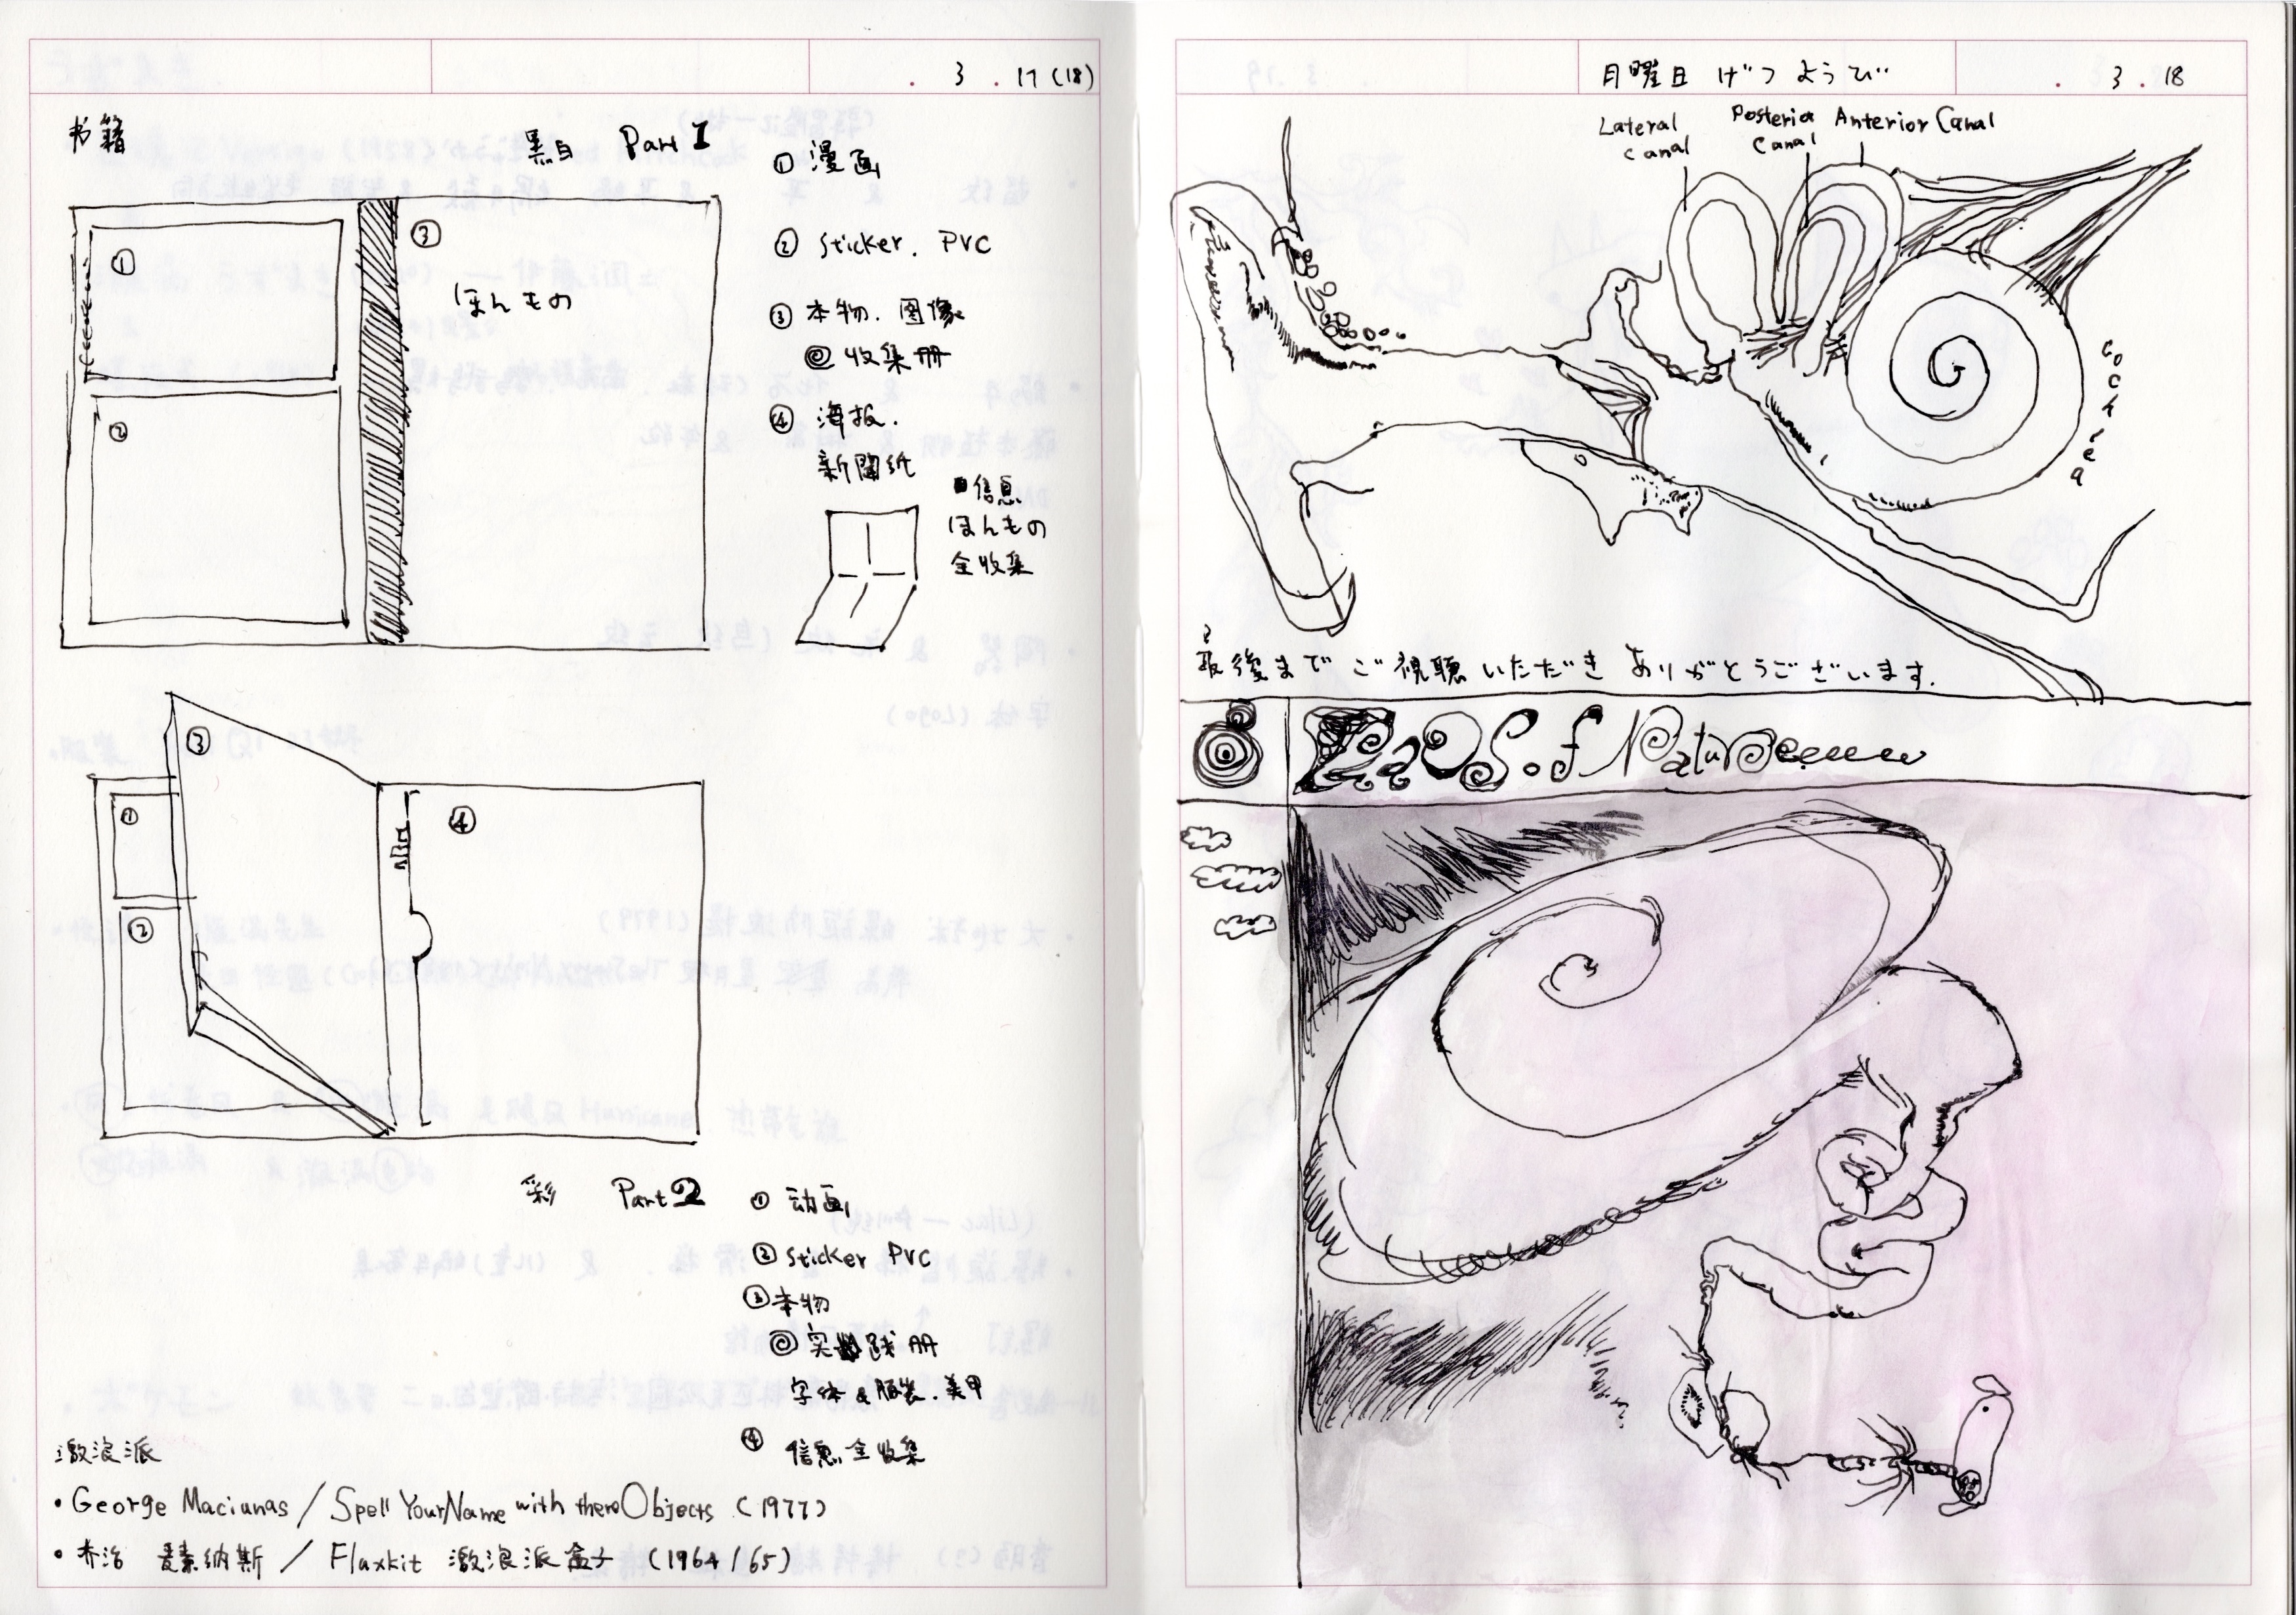 3 . 17 (18)
书籍
黑白 Part 1
① 漫画
② Sticker. PVC
③ 本物. 图像
収集册
④ 海报.
新聞紙
信息
ほんもの
全收集
①
②
③
ほんもの
③
①
②
④
彩 Part 2
① 动画
② Sticker PVC
③ 本物
实践册
字体 & 服装. 美甲
④ 信息全收集
激浪派
• George Maciunas / Spell Your Name with there Objects (1977)
• 乔治 麦素纳斯 / Fluxkit 激浪派盒子 (1964/65)
月曜日 げつようび
3 . 18
Lateral Canal
Posteria Canal
Anterior Canal
cochlea
最後までご視聴いただきありがとうございます.
of Nature